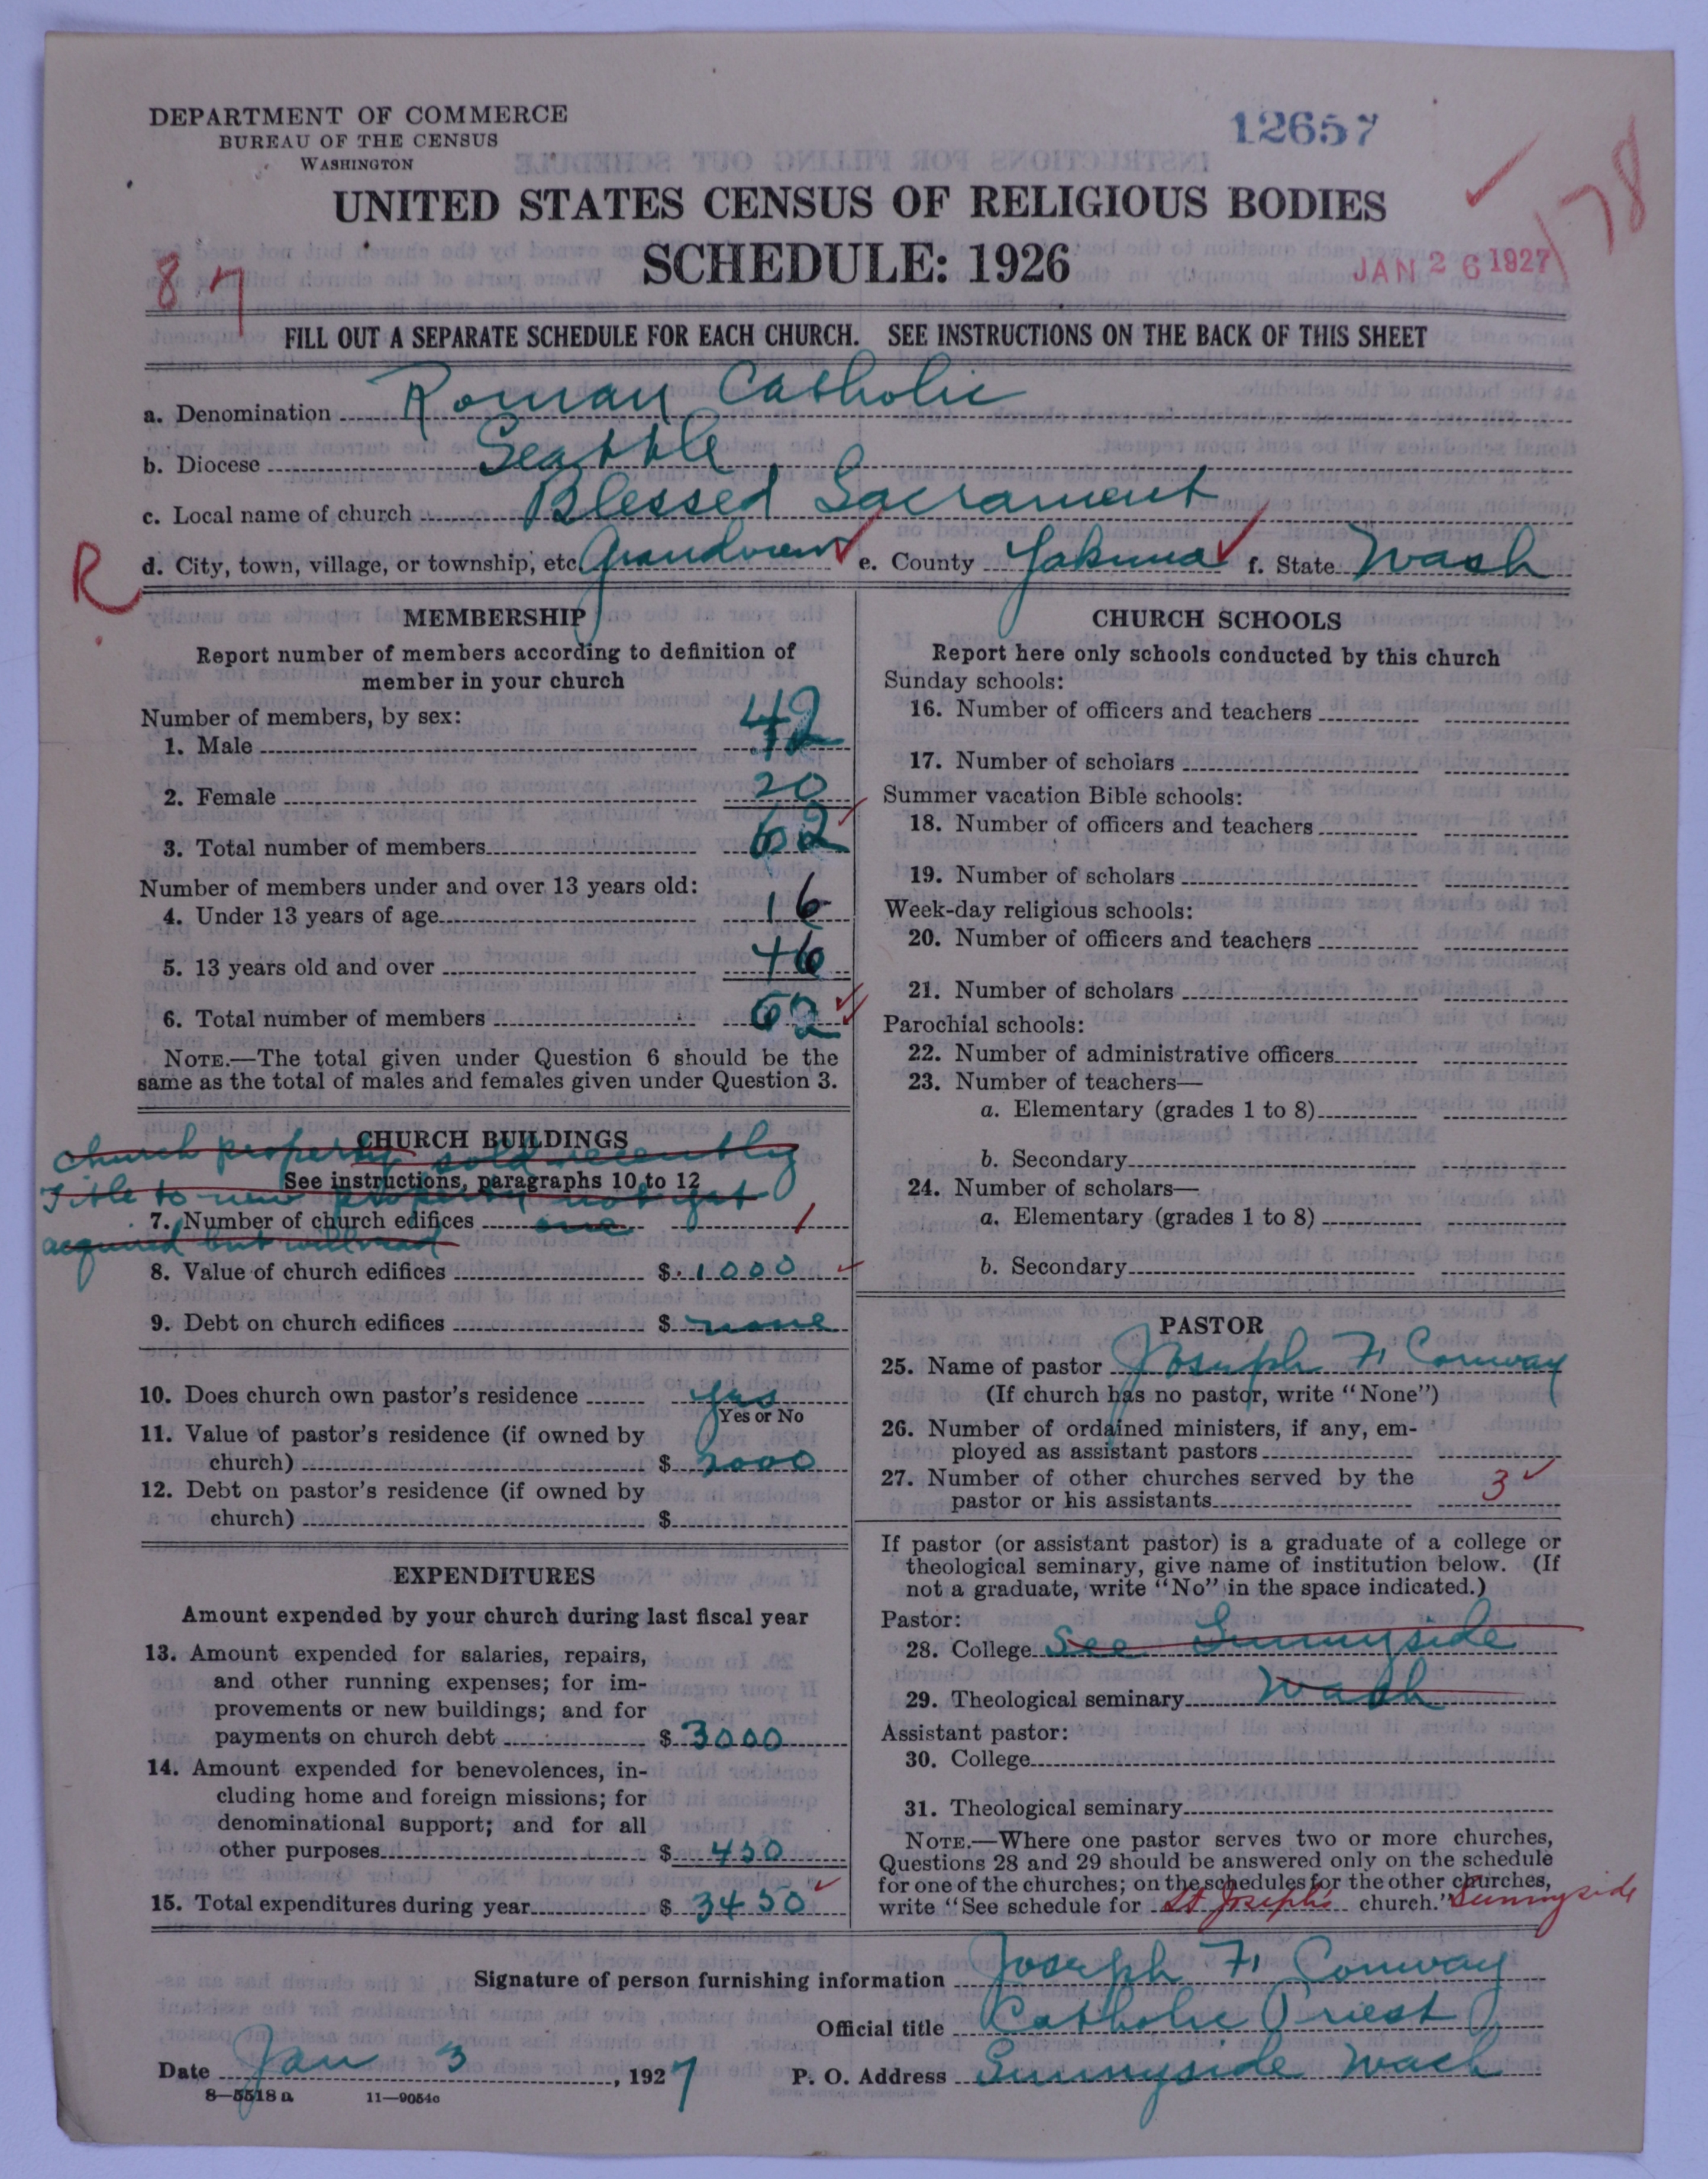 DEPARTMENT OF COMMERCE
BUREAU OF THE CENSUS
WASHINGTON
12657
178
UNITED STATES CENSUS OF RELIGIOUS BODIES
SCHEDULE: 1926
JAN 26 1927
87
FILL OUT A SEPARATE SCHEDULE FOR EACH CHURCH. SEE INSTRUCTIONS ON THE BACK OF THIS SHEET
a. Denomination Roman Catholic
b. Diocese Seattle
c. Local name of church Blessed Sacrament
R
d. City, town, village, or township, etc. Grandview e. County Yakima f. State Wash
MEMBERSHIP
Report number of members according to definition of
member in your church
Number of members, by sex:
1. Male 42
2. Female 20
3. Total number of members 62
Number of members under and over 13 years old:
4. Under 13 years of age 16
5. 13 years old and over 46
6. Total number of members 62
NOTE.—The total given under Question 6 should be the
same as the total of males and females given under Question 3.
CHURCH BUILDINGS
church property sold recently
See instructions, paragraphs 10 to 12
Title to new property not yet
7. Number of church edifices one 1
acquired but will
8. Value of church edifices $ 1000
9. Debt on church edifices $ none
10. Does church own pastor's residence yes
Yes or No
11. Value of pastor's residence (if owned by
church) $ 2000
12. Debt on pastor's residence (if owned by
church) $
EXPENDITURES
Amount expended by your church during last fiscal year
13. Amount expended for salaries, repairs,
and other running expenses; for im-
provements or new buildings; and for
payments on church debt $ 3000
14. Amount expended for benevolences, in-
cluding home and foreign missions; for
denominational support; and for all
other purposes $ 450
15. Total expenditures during year $ 3450
CHURCH SCHOOLS
Report here only schools conducted by this church
Sunday schools:
16. Number of officers and teachers
17. Number of scholars
Summer vacation Bible schools:
18. Number of officers and teachers
19. Number of scholars
Week-day religious schools:
20. Number of officers and teachers
21. Number of scholars
Parochial schools:
22. Number of administrative officers
23. Number of teachers—
a. Elementary (grades 1 to 8)
b. Secondary
24. Number of scholars—
a. Elementary (grades 1 to 8)
b. Secondary
PASTOR
25. Name of pastor Joseph F. Conway
(If church has no pastor, write "None")
26. Number of ordained ministers, if any, em-
ployed as assistant pastors
27. Number of other churches served by the
pastor or his assistants 3
If pastor (or assistant pastor) is a graduate of a college or
theological seminary, give name of institution below. (If
not a graduate, write "No" in the space indicated.)
Pastor:
28. College See Sunnyside
29. Theological seminary Wash
Assistant pastor:
30. College
31. Theological seminary
NOTE.—Where one pastor serves two or more churches,
Questions 28 and 29 should be answered only on the schedule
for one of the churches; on the schedules for the other churches,
write "See schedule for St Joseph's church." Sunnyside
Signature of person furnishing information Joseph F. Conway
Official title Catholic Priest
Date Jan 3, 1927 P. O. Address Sunnyside Wash
8—5518 a 11—9054c